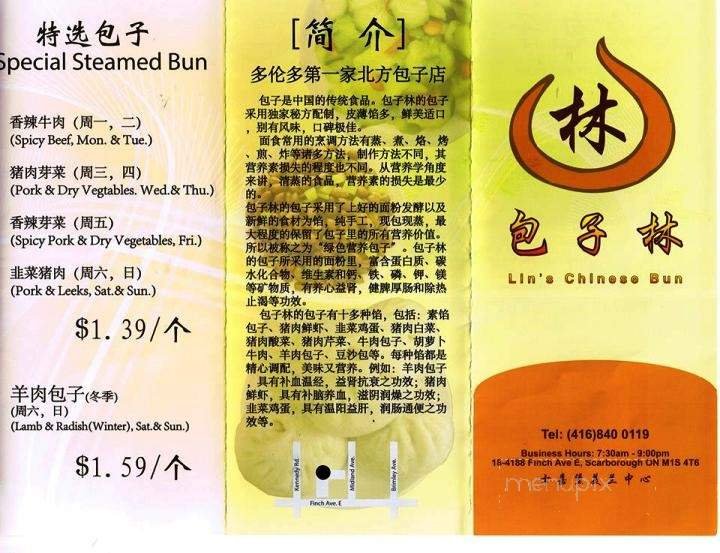 特选包子
Special Steamed Bun
香辣牛肉（周一，二）
(Spicy Beef, Mon. & Tue.)
猪肉芽菜（周三，四）
(Pork & Dry Vegtables. Wed.& Thu.)
香辣芽菜（周五）
(Spicy Pork & Dry Vegetables, Fri.)
韭菜猪肉（周六，日）
(Pork & Leeks, Sat.& Sun.)
$1.39/个
羊肉包子(冬季)
(周六，日)
(Lamb & Radish(Winter), Sat.& Sun.)
$1.59/个
[简 介]
多伦多第一家北方包子店
包子是中国的传统食品。包子林的包子
采用独家秘方配制，皮薄馅多，鲜美适口
，别有风味，口碑极佳。
面食常用的烹调方法有蒸、煮、烙、烤
、煎、炸等诸多方法，制作方法不同，其
营养素损失的程度也不同。从营养学角度
来讲，清蒸的食品，营养素的损失是最少
的。
包子林的包子采用了上好的面粉发酵以及
新鲜的食材为馅，纯手工，现包现蒸，最
大程度的保留了包子里的所有营养价值。
所以被称之为“绿色营养包子”。包子林
的包子所采用的面粉里，富含蛋白质、碳
水化合物、维生素和钙、铁、磷、钾、镁
等矿物质，有养心益肾，健脾厚肠和除热
止渴等功效。
包子林的包子有十多种馅，包括：素馅
包子、猪肉鲜虾、韭菜鸡蛋、猪肉白菜、
猪肉酸菜、猪肉芹菜、牛肉包子、胡萝卜
牛肉、羊肉包子、豆沙包等。每种馅都是
精心调配，美味又营养。例如：羊肉包子
，具有补血温经，益肾抗衰之功效；猪肉
鲜虾，具有补脑养血，滋阴润燥之功效；
韭菜鸡蛋，具有温阳益肝，润肠通便之功
效等。
Kennedy Rd.
Midland Ave.
Brimley Ave.
Finch Ave. E
林
包子林
Lin's Chinese Bun
Tel: (416)840 0119
Business Hours: 7:30am - 9:00pm
18-4188 Finch Ave E, Scarborough ON M1S 4T6
中心
menupix